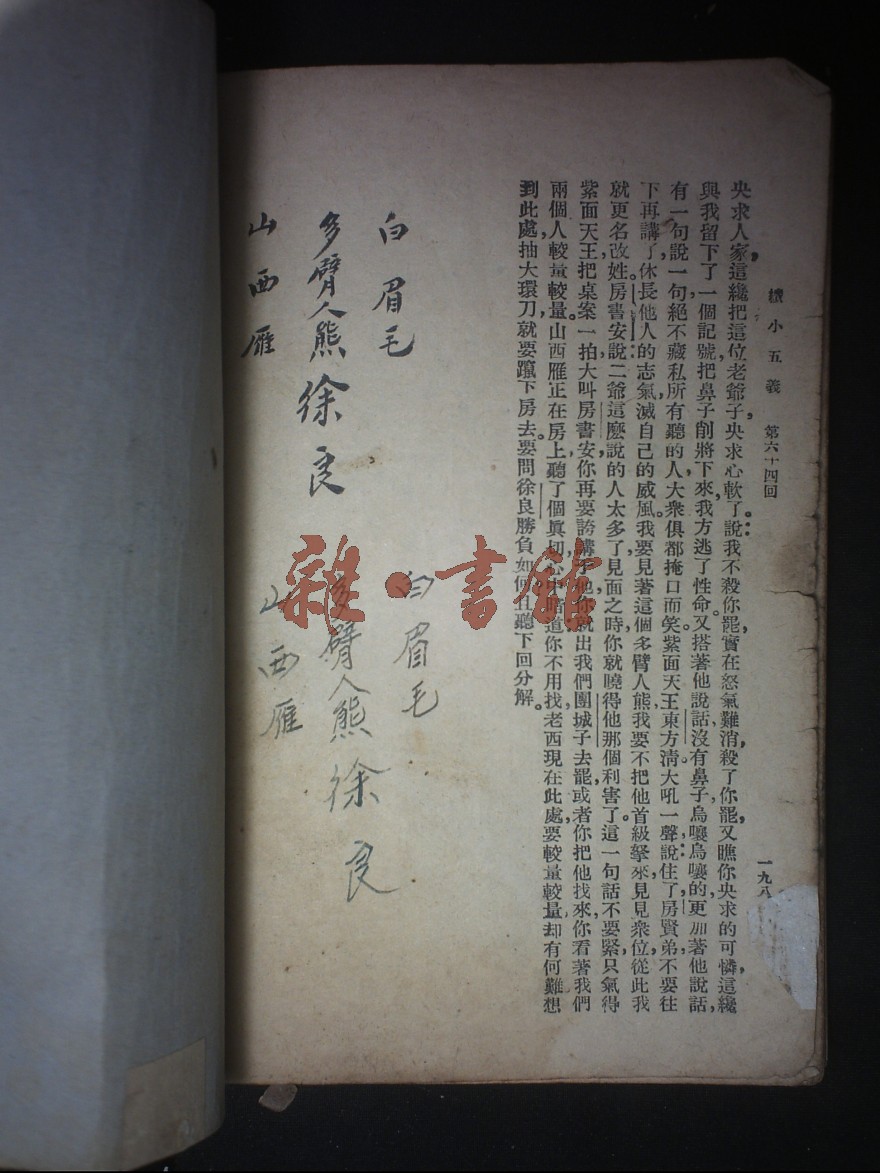 續小五義　第六十四回　一九八
央求人家，這纔把這位老爺子央求心軟了說：我不殺你罷，實在怒氣難消，殺了你罷，又瞧你央求的可憐，這纔
與我留下了一個記號，把鼻子削將下來，我方逃了性命。又搭著他說話沒有鼻子，烏嚷烏嚷的，更加著他說話，
有一句說一句，絕不藏私，所有聽的人，大衆俱都掩口而笑。紫面天王東方清大吼一聲，說：住了，房賢弟，不要往
下再講了，休長他人的志氣，滅自己的威風。我要見著這個多臂人熊，我要不把他首級拏來見見衆位，從此我
就更名改姓。房書安說：二爺，這麽說的人太多了，見面之時，你就曉得他那個利害了。這一句話不要緊，只氣得
紫面天王把桌案一拍，大叫房書安，你再要誇講于他，你就出我們團城子去罷，或者你把他找來，你看著我們
兩個人較量較量。山西雁正在房上聽了個真切，心中暗道，你不用找，老西現在此處，要較量較量，却有何難，想
到此處，抽大環刀，就要躥下房去。要問徐良勝負如何，且聽下回分解。
白眉毛
多臂人熊徐良
山西雁
白眉毛
多臂人熊徐良
山西雁
雜·書館